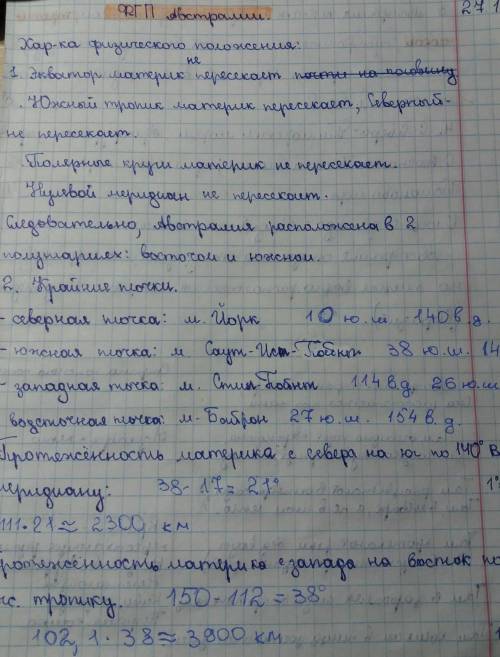 ФГП Австралии. 27.1
Хар-ка физического положения:
1. Экватор материк не пересекает почти на половину
. Южный тропик материк пересекает, Северный-
не пересекает.
Полерные круги материк не пересекает.
Нулевой меридиан не пересекает.
Следовательно, Австралия расположена в 2
полушариех: восточой и южной.
2. Крайние точки.
- северная точка: м. Йорк 10 ю.ш 140 в.д.
- южная точка: м Саут-Ист-Пойнт 38 ю.ш. 14
- западная точка: м. Стип-Пойнт 114 в.д. 26 ю.ш
восточная точка: м-Байрон 27 ю.ш. 154 в.д.
Протяжённость материка с севера на юг по 140° в
меридиану: 38-17=21° 1°
111·21≈2300 км
ротяжённость материка с запада на восток по
с. тропику. 150-112=38°
102,1·38≈3900 км